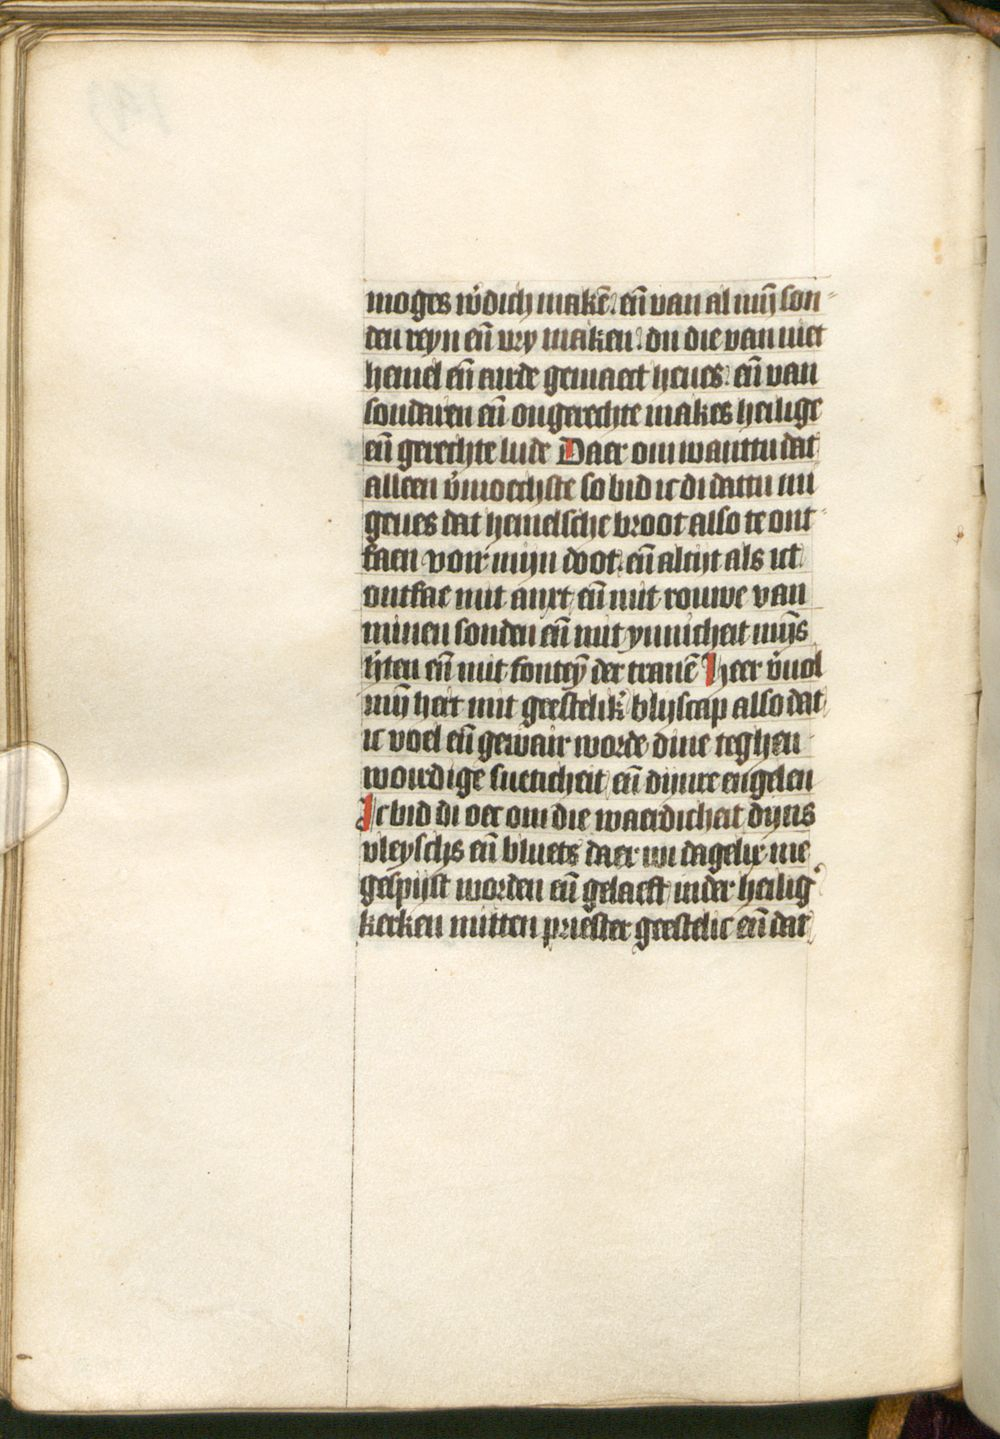 moges w'dich makē. eñ van al mijn̄ son-
den reyn eñ vry maken. du die van niet
hemel eñ airde gemaect heues. eñ van
sondaren eñ ongerechte makes heilige
eñ gerechte lude Daer om wanttu dat
alleen v'moechste so bid ic di dattu mi
geues dat hemelsche broot also te ont-
faen voir mijn doot. eñ altijt als ict
ontfae mit anxt eñ mit rouwe van
minen sonden eñ mit ynnicheit mijn̄s
h'ten eñ mit fonteyn̄ der tranē Heer v'uol
mijn̄ hert mit geestelik' blijscap also dat
ic voel eñ gewair worde dine teghen
woirdige sueticheit eñ dijnre engelen
Ic bid di oec om die waerdicheit dijns
vleyschs eñ bluets daer wi dagelix me
gespijst worden eñ gelaeft inder heilig'
kerken mitten priester geestelic eñ dat